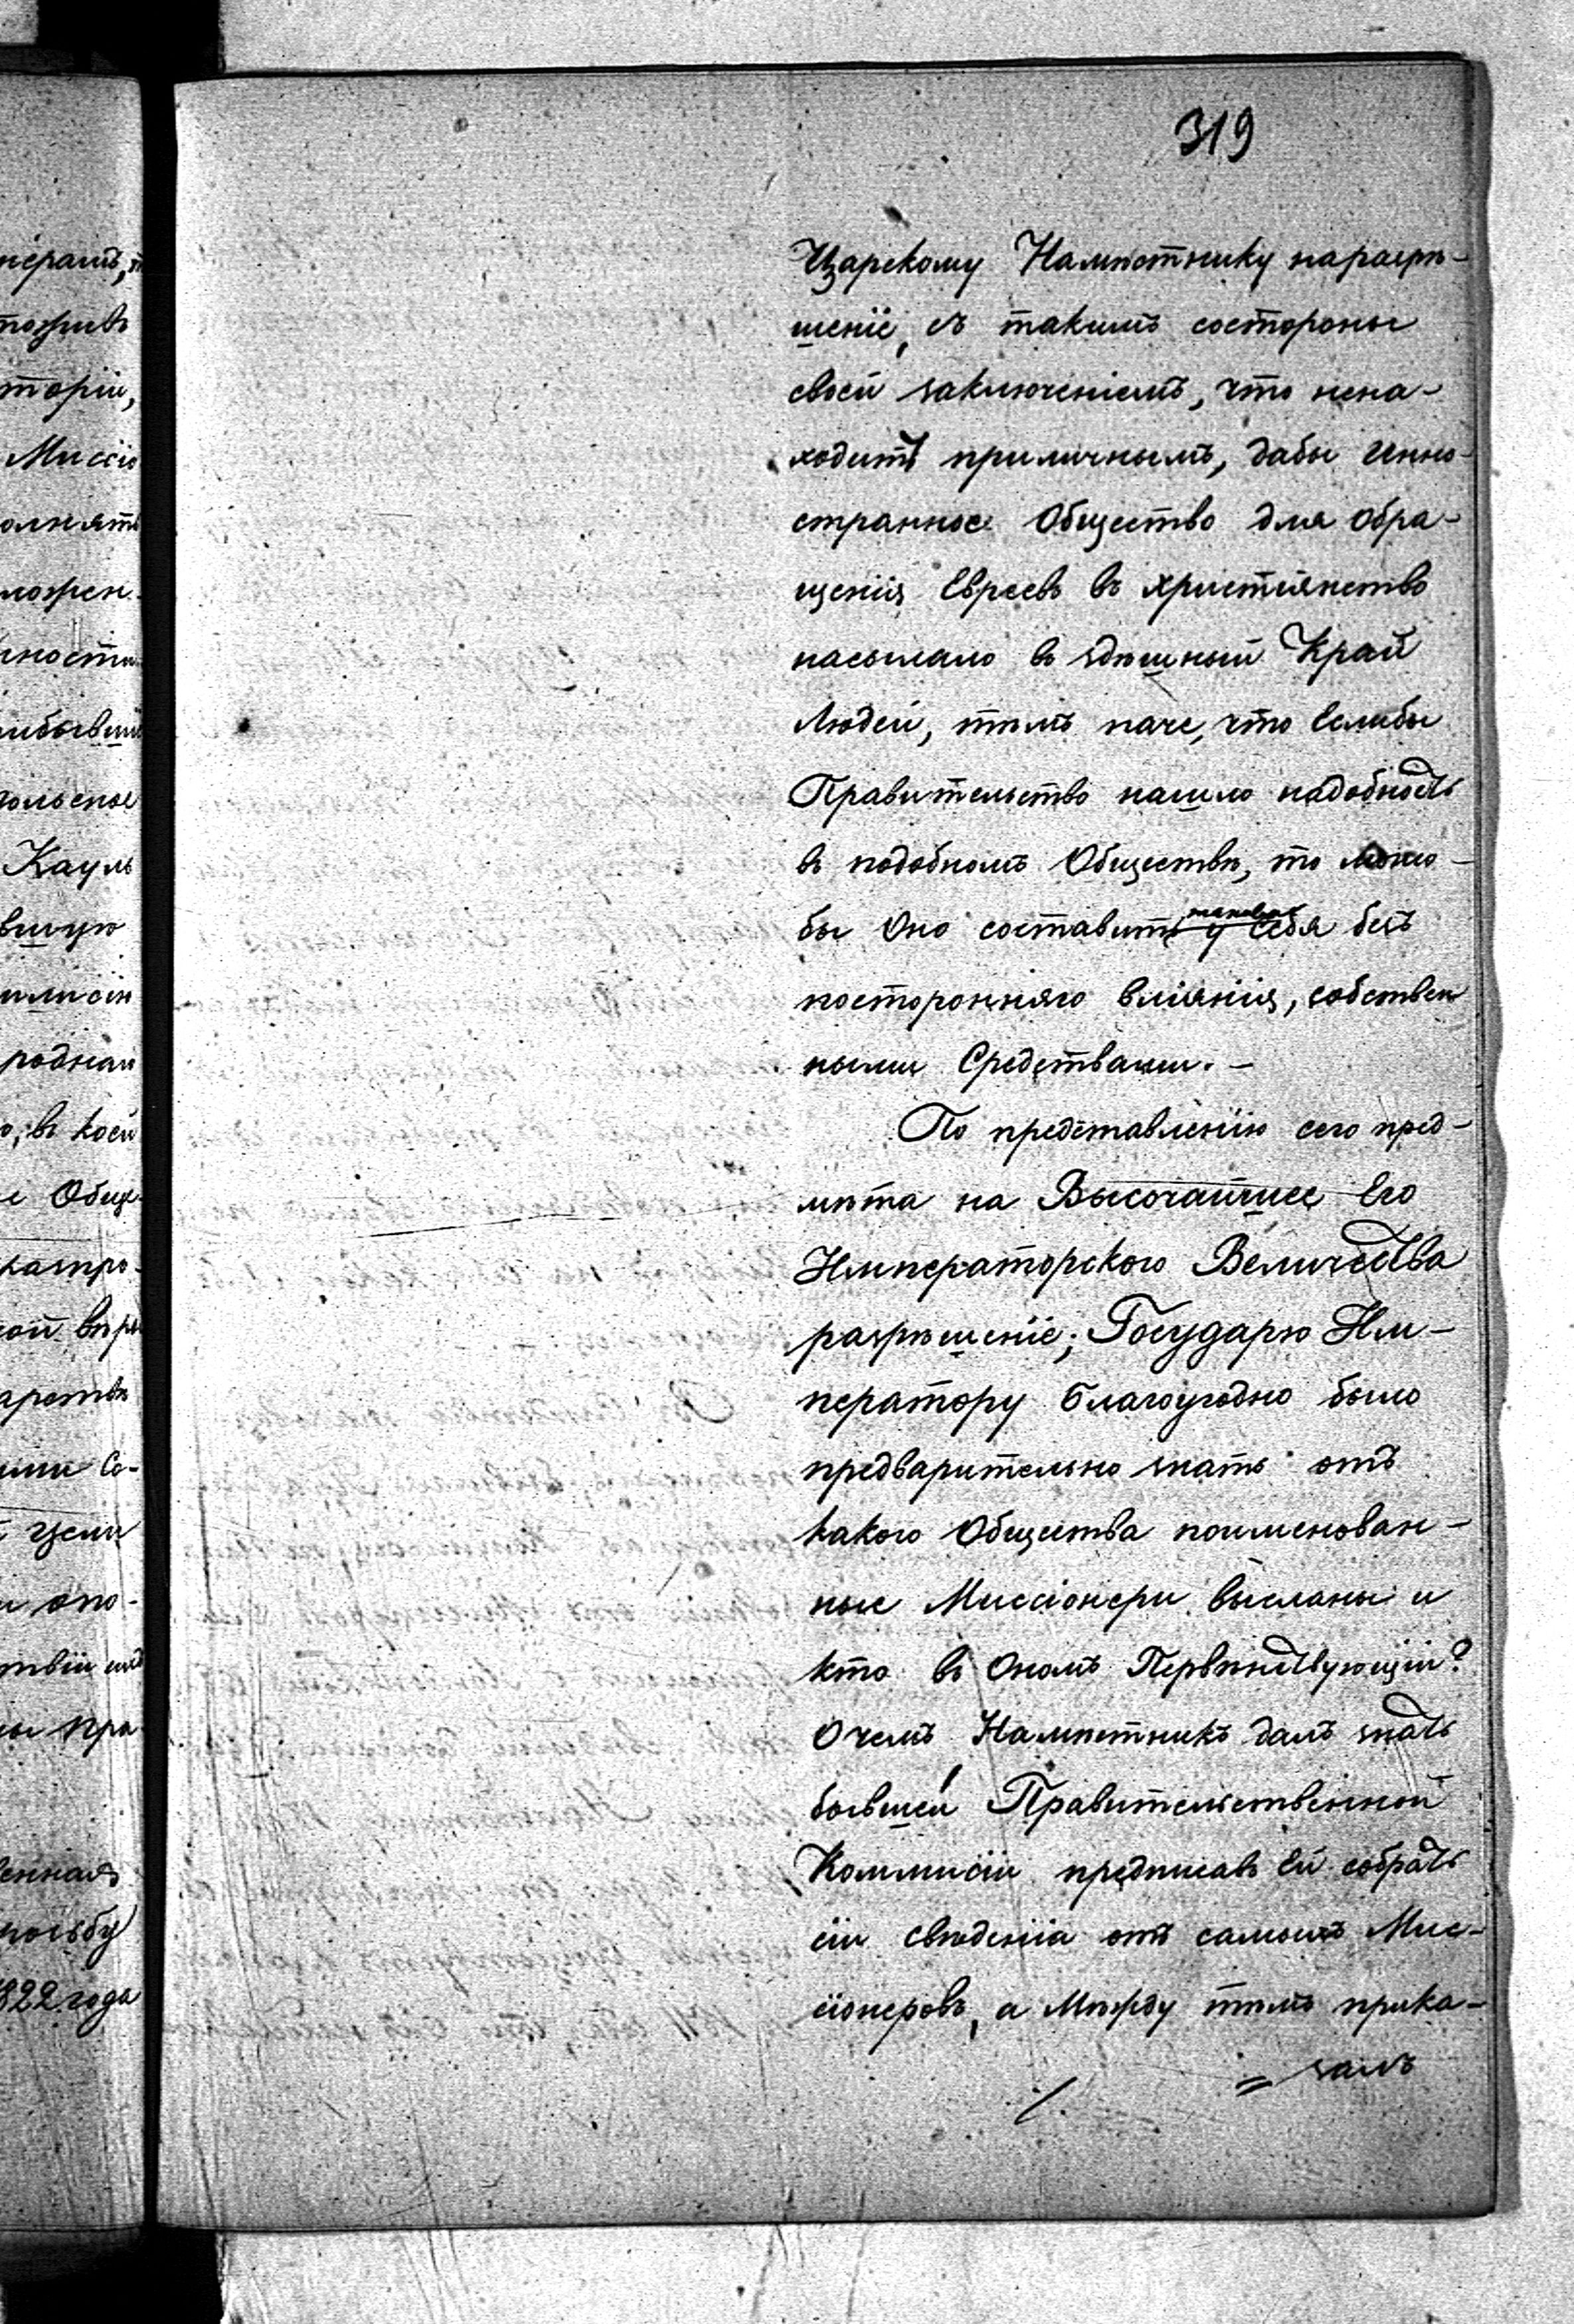 319
Царскому Намѣстнику наразрѣ-
шеніе, съ такимъ состороны
своей заключеніемъ, что нена-
ходитъ приличнымъ, дабы инно-
странное Общество для обра-
щенія Евреевъ въ христіянство
насылало въ здѣшный Край
Людей, тѣмъ паче, что Еслибы
Правительство нашло надобность
въ подобномъ Обществѣ, то могло-
бы Оно составить таковое у себя безъ
посторонняго вліянія, собствен
ными Средствами. —
По представленію сего пред-
мѣта на Высочайшее Его
Императорского Величества
разрѣшеніе; Государю Им-
ператору благоугодно было
предварительно знать отъ
какого Общества поименован-
ные Миссіонери высланы и
кто въ Ономъ Первѣнствующій?
Очемъ Намѣстникъ далъ знать
бывшей Правительственной
Коммисіи предписавъ Ей собрать
сіи свѣденіа отъ самыхъ Мис-
сіонеровъ, а Мѣжду тѣмъ прика-
= залъ
нераль,
торіи,
Миссію
ложен-
ности
Кауль
вшую
родная
въ коей
Общ
распро-
ой вѣры
арствѣ
ими Со-
цели
опо-
ы пра-
енная
росьбу
1822 года